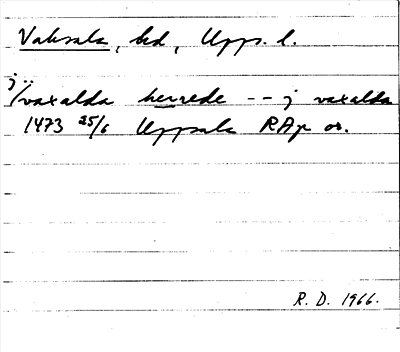 Vaksala, hd, Upps. l.
j /vaxalda herrede -- j vaxalda
1473 25/6 Uppsala RAp or.
R. D. 1966.